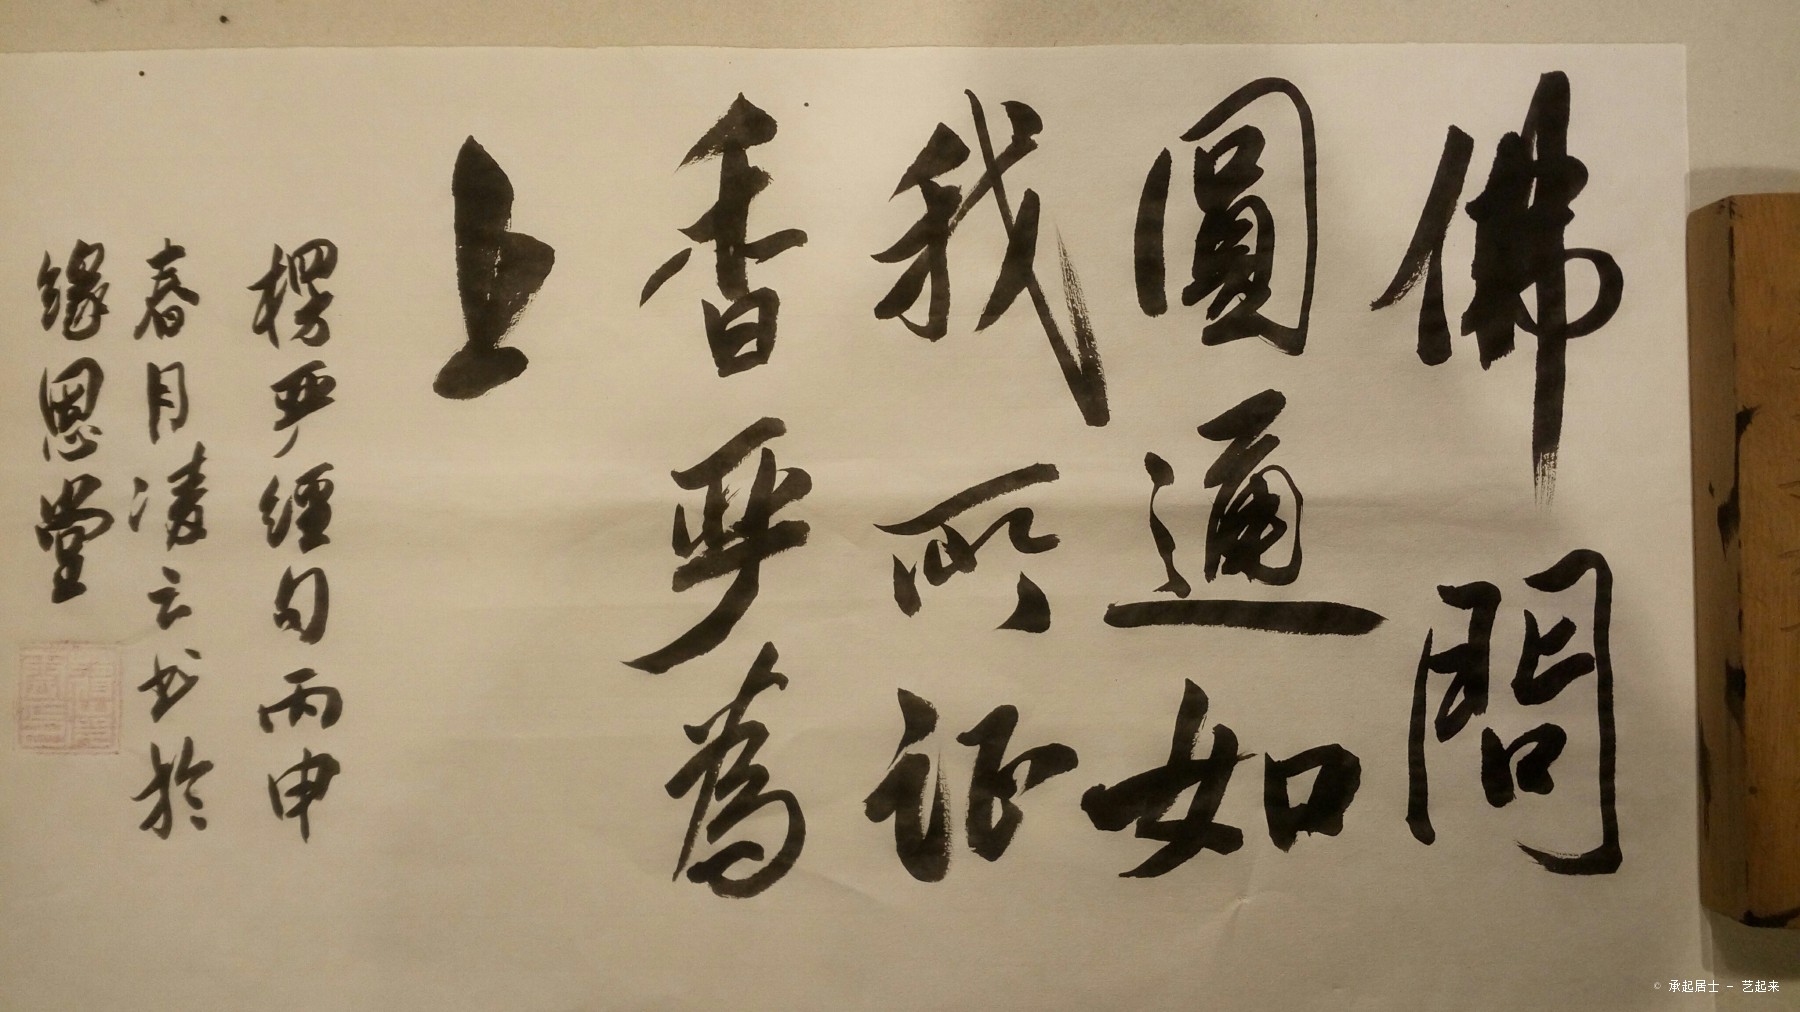 佛問
圓通如
我所证
香严為
上
楞严經句丙申
春月凌云书於
缘恩堂
© 承起居士 - 艺起来